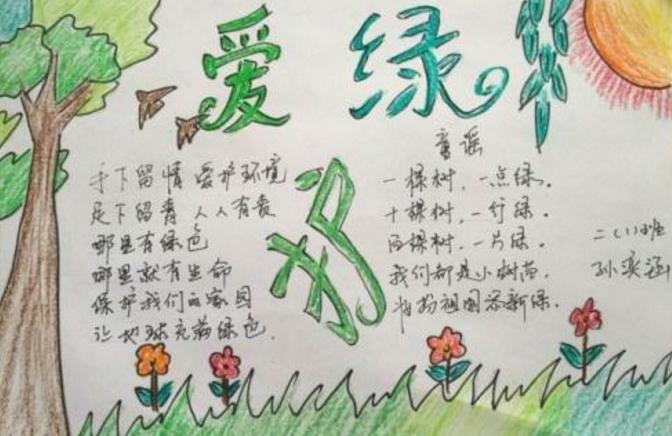 爱 护 绿
手下留情 爱护环境
足下留青 人人有责
哪里有绿色
哪里就有生命
保护我们的家园
让地球充满绿色.
童谣
一棵树,一点绿。
十棵树,一行绿。
百棵树,一片绿。
我们都是小树苗,
祖国添新绿.
二(1)班
孙奕涵